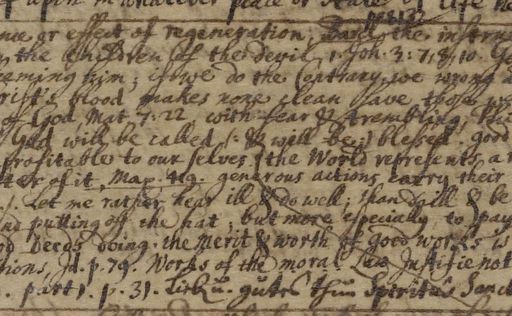 upon in whatever place or state of life he
nce or effect of regeneration; the instru
the children of the devil, 1. Joh. 3: 7, 8, 10. Go
eming him; if we do the contrary we wrong a
rist's blood makes none clean save those w
of God Mat 7: 22 with fear & trembling,
God will be called /: & will be :/ blessed, good
profitable to our selves, the World represents a
ter of it, Max. 49. generous actions carry their
Let me rather hear ill & do well, than & be
ne putting off the hat, but more especially to pay
deeds doing: the Merit & worth of good works is
tions, Id. p. 79. Works of the moral Law Justifie not
part 1. p. 31. gutes thun Spiritus Sanct